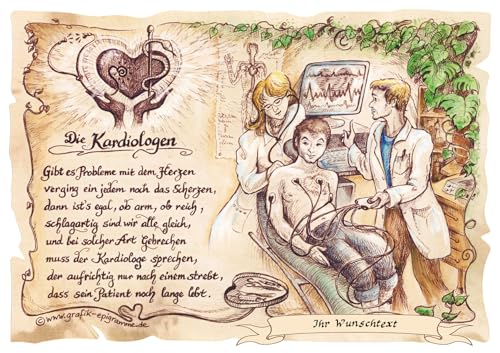 Die Kardiologen
Gibt es Probleme mit dem Herzen
verging ein jedem noch das Scherzen,
dann ist's egal, ob arm, ob reich,
schlagartig sind wir alle gleich,
und bei solcher Art Gebrechen
muss der Kardiologe sprechen,
der aufrichtig nur nach einem strebt,
dass sein Patient noch lange lebt.
©www.grafik-epigramme.de
Ihr Wunschtext